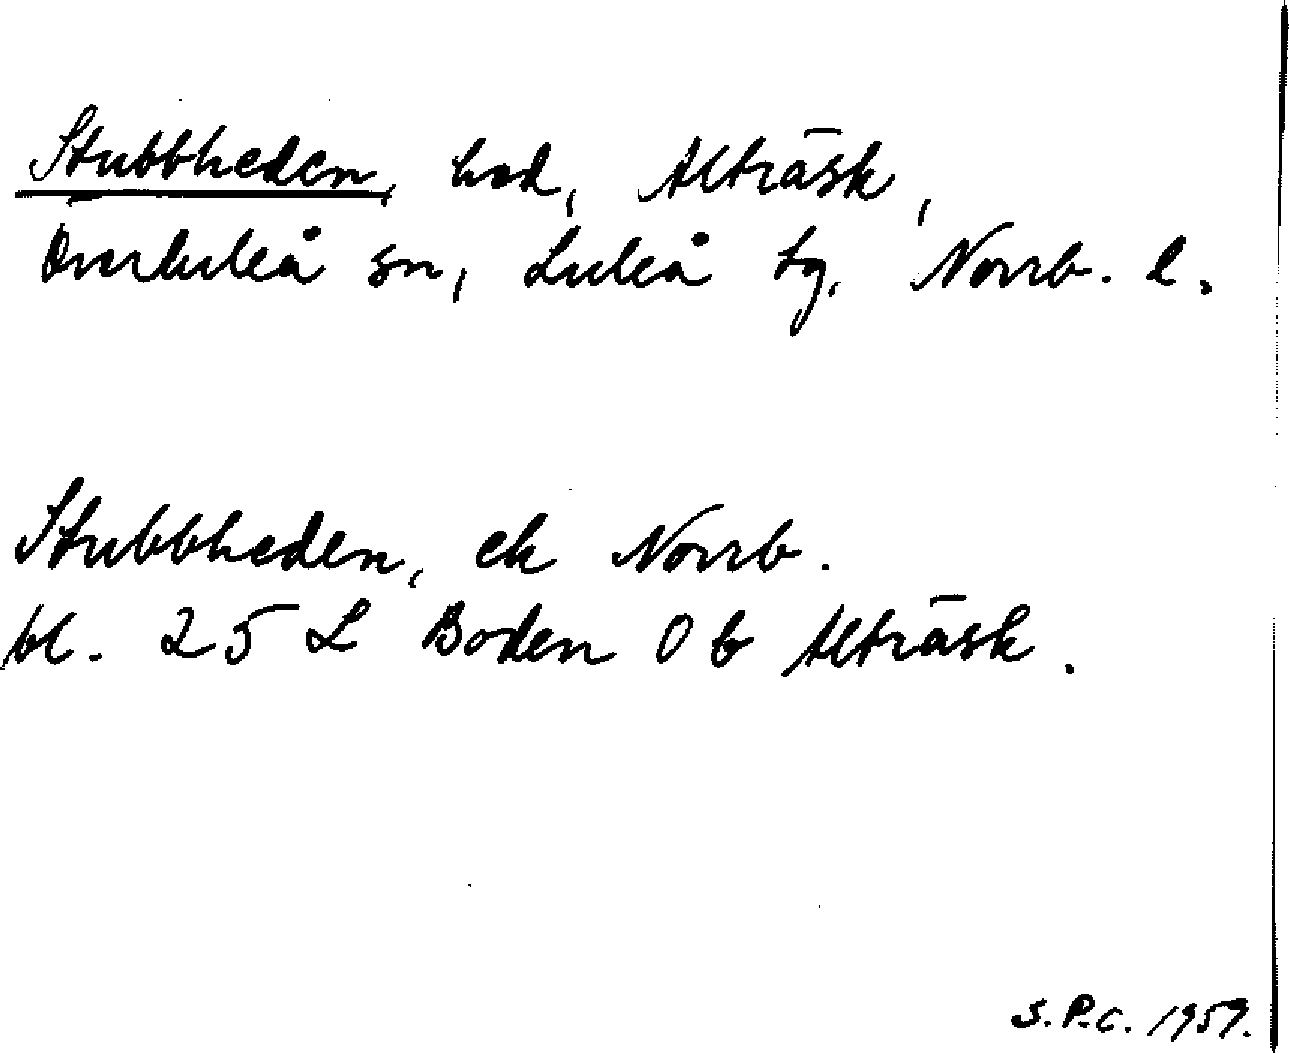 Stubbheden, hed, Alträsk,
Överluleå sn, Luleå tg, Norrb. l.
Stubbheden, ek Norrb.
bl. 25 L Boden 0 b Alträsk.
S.P.C. 1959.